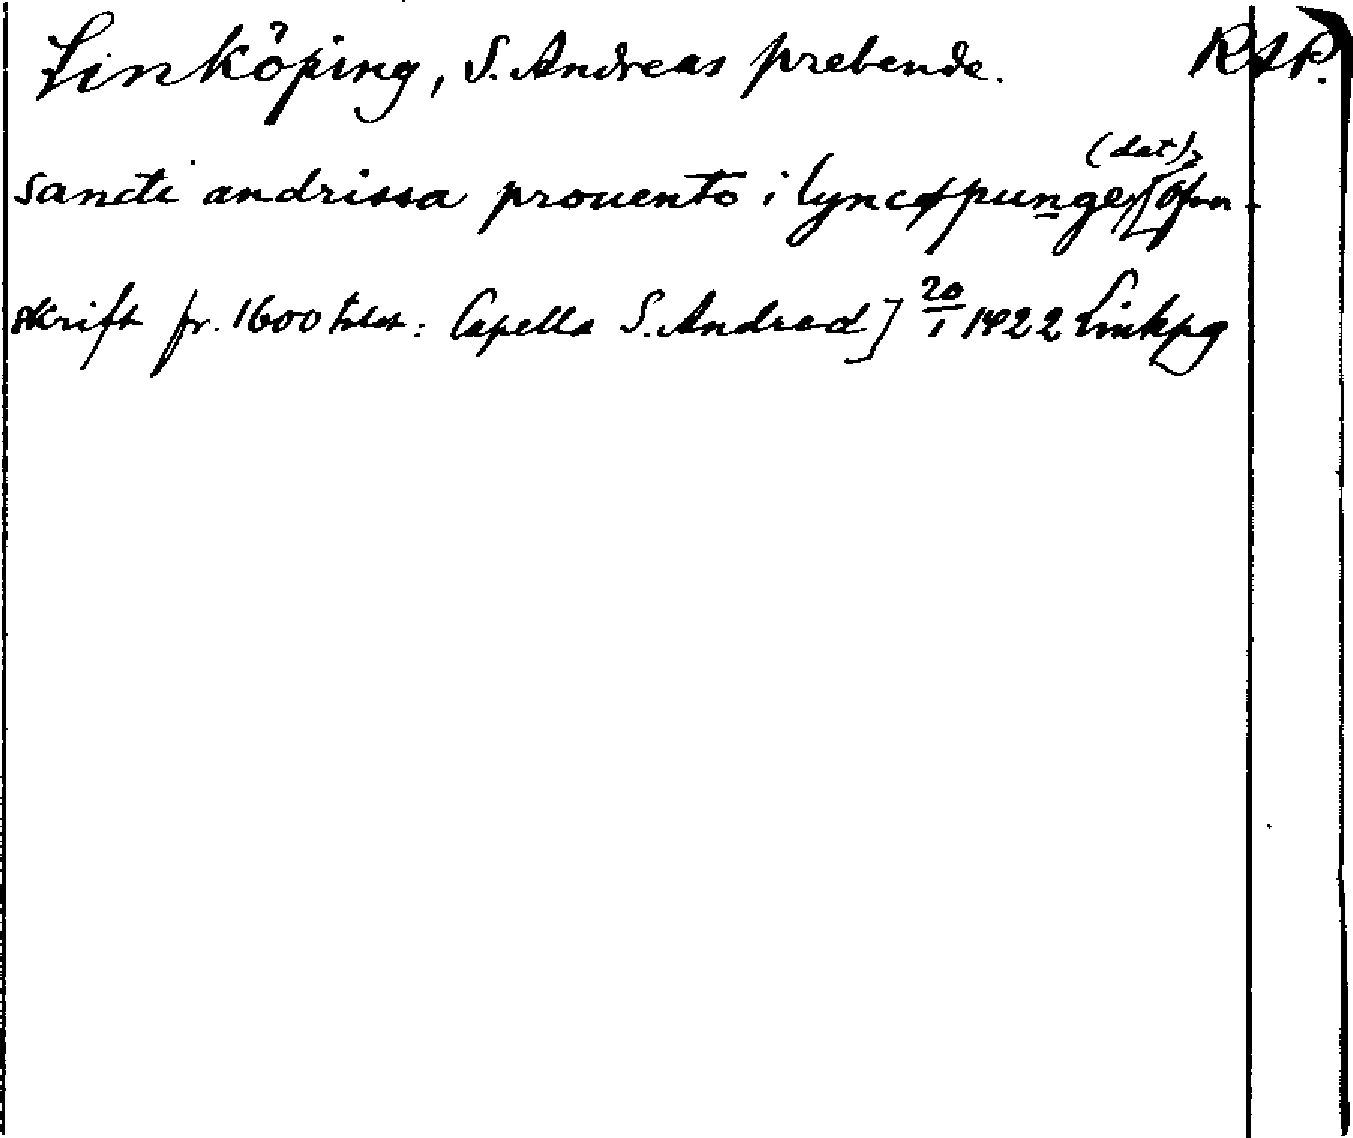 Linköping, S. Andreas prebende. RAP.
sancti andrissa prouento i lyncøpunge (dat) [Öfver-
skrift fr. 1600 talet: Capella S. Andreæ] 20/1 1422 Linkpg